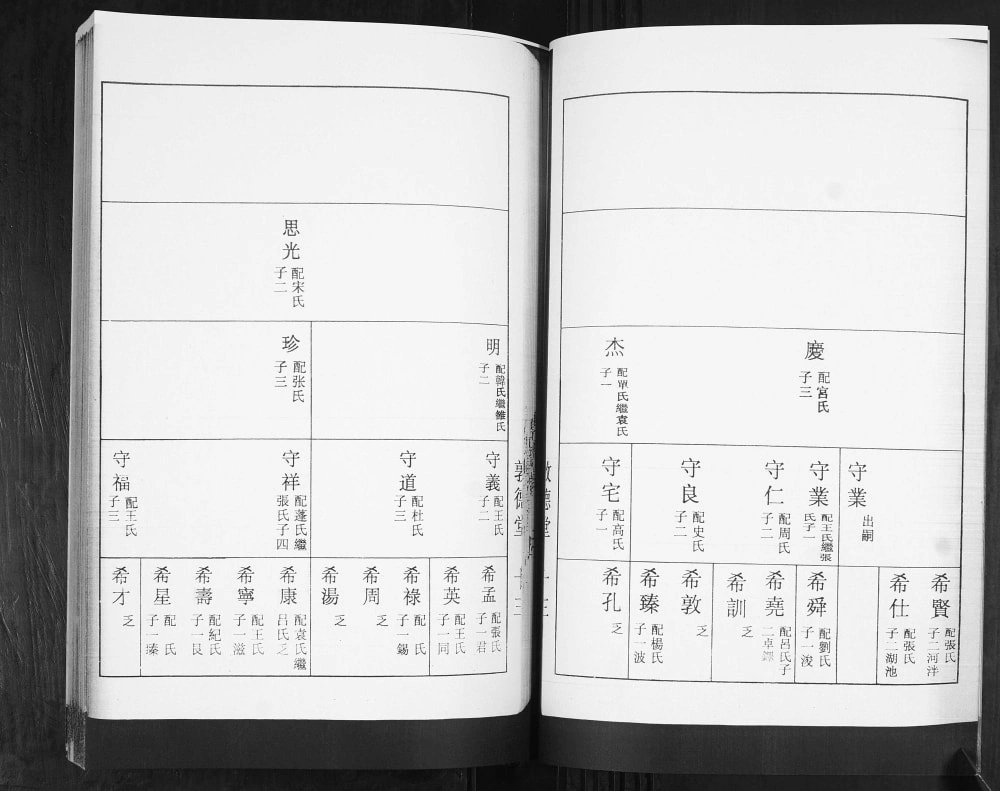 慶
配宮氏
子三
杰
配單氏繼袁氏
子一
守業
出嗣
守業
配王氏繼張
氏子一
守仁
配周氏
子二
守良
配史氏
子二
守宅
配高氏
子一
希賢
配張氏
子二河泮
希仕
配張氏
子二湖池
希舜
配劉氏
子一浚
希堯
配呂氏子
二卓
希訓
乏
希敦
乏
希臻
配楊氏
子一波
希孔
乏
敦德堂
十三
思光
配宋氏
子二
明
配韓氏繼雒氏
子二
珍
配张氏
子三
守義
配王氏
子二
守道
配杜氏
子三
守祥
配蓬氏繼
張氏子四
守福
配王氏
子三
希孟
配張氏
子一君
希英
配王氏
子一同
希祿
配 氏
子一錫
希周
乏
希湯
乏
希康
配袁氏繼
呂氏乏
希寧
配王氏
子一滋
希壽
配紀氏
子一艮
希星
配 氏
子一瑧
希才
乏